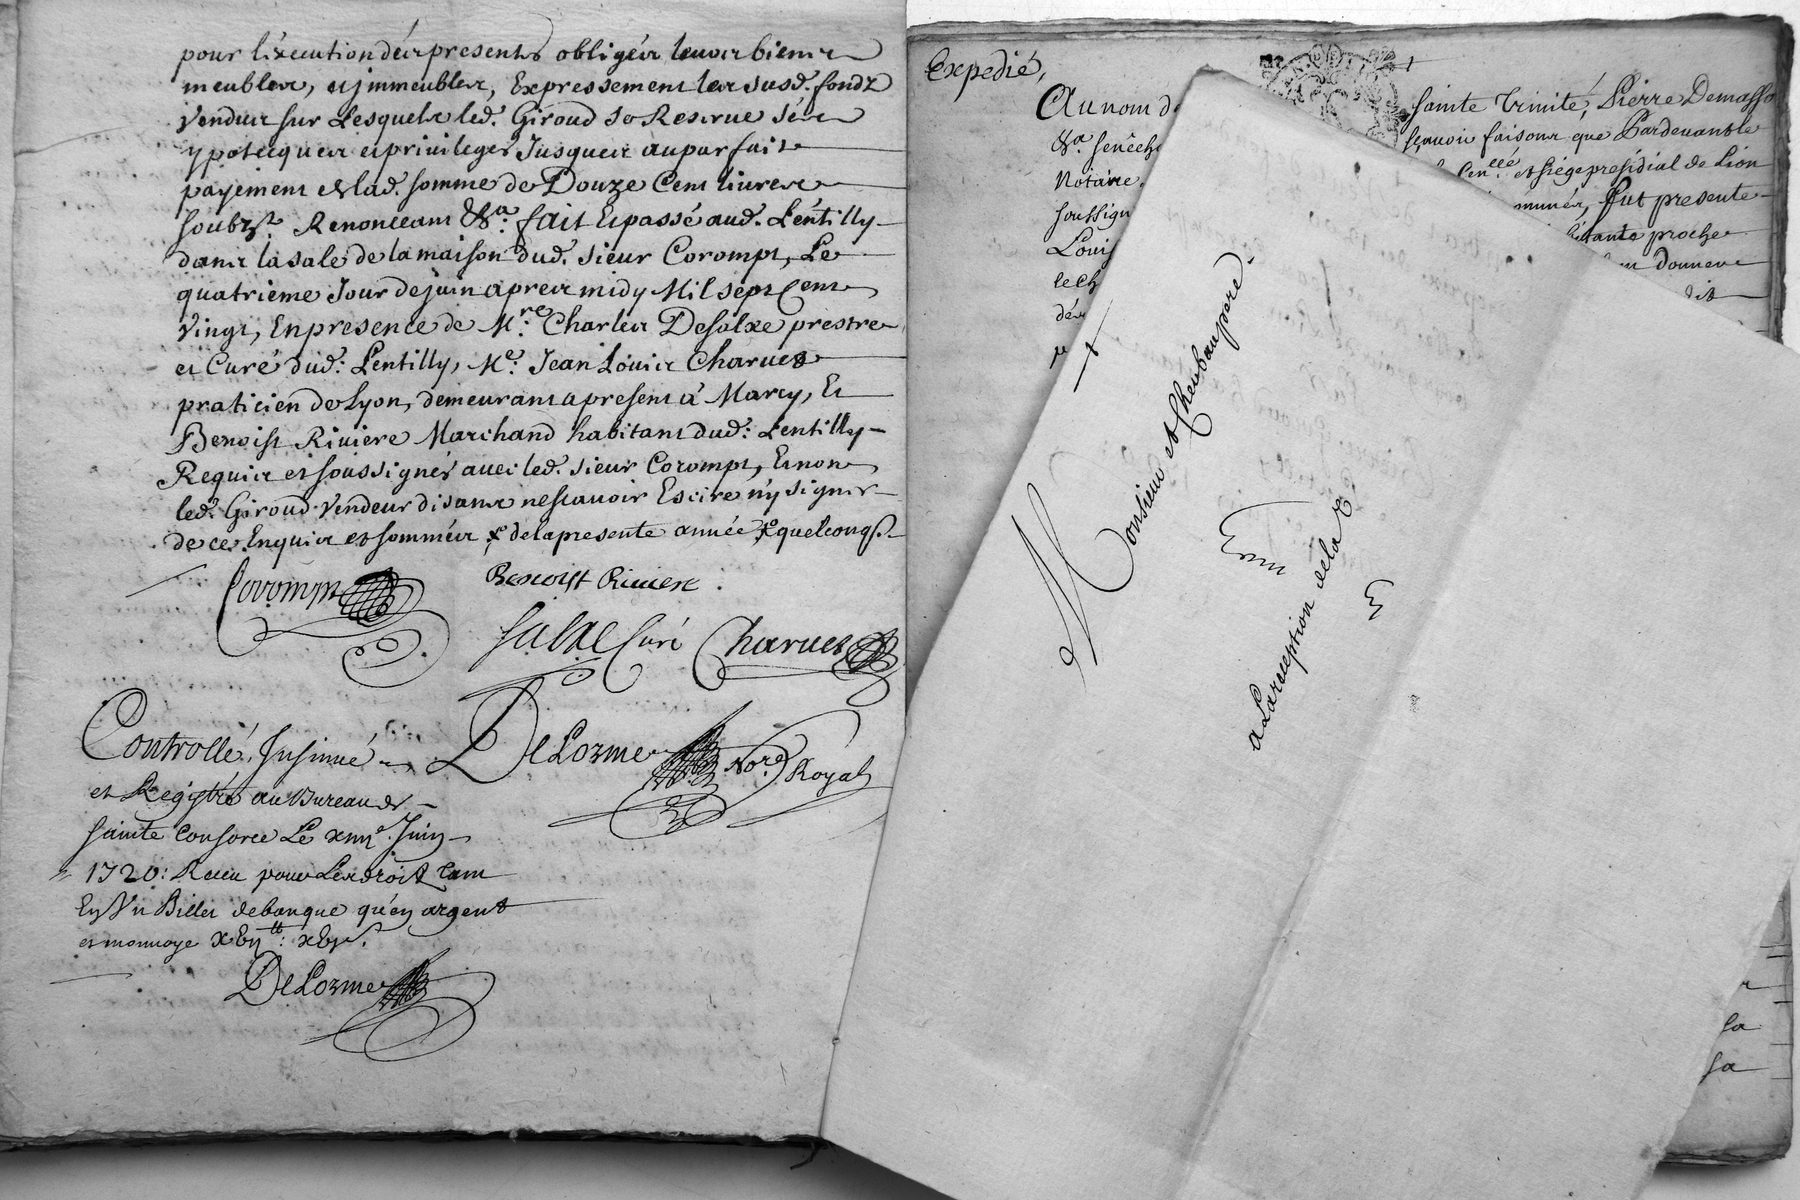 pour l'éxecution dés presents obligés leurs biens
meubles, et jmmeubles, Expressement les susd. fonds
Vendus sur Lesquels led. Giroud se Reserve sés
ypotecques et privileges Jusques au parfait
payement de lad. somme de Douze Cent livres
Renonceant &a. fait Et passé aud. Léntilly
dans la sale de la maison dud. sieur Corompt, Le
quatrième Jour de juin apres midy Mil sept Cent
Vingt, En presence de Mre. Charles Desalxe prestre
et Curé dud: Lentilly, Me. Jean Louis Charuet
praticien de Lyon, demeurant a present à Marcy, Et
Benoist Riviere Marchand habitant dud: Lentilly
Requis et soussignés avec led. sieur Corompt, Et non
led. Giroud Vendeur disant ne scavoir Escrire n'y signer
de ce Enquis et sommés de la presente année quelconqs.
Corompt
Benoist Riviere
Salxe Curé Charuet
DeLorme Nore. Royal
Controllé, Insinué
et Registré au Bureau de
sainte Consorce Le Juin
1720: Receu pour Les droits tant
En Un Billet de banque qu'en argent
et monnoye
DeLorme
Expedié,
Au nom de sainte Trinité, Pierre Demasso
&a. senêch scavoir faisons que Pardevant le
Notaire et siége presidial de Lion
soussign fut presente
Louis proche
le Ch donner
Monsieur et cher beaupere.
a La reception de la
sa
sa